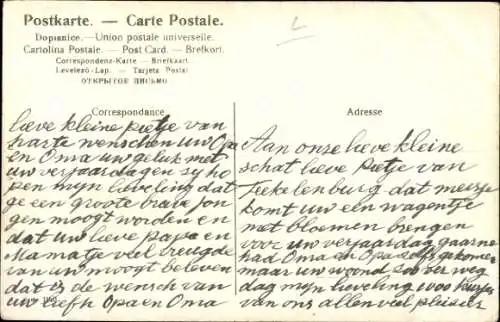 Postkarte. — Carte Postale.
Dopisnice. — Union postale universelle.
Cartolina Postale. — Post Card. — Brefkort.
Correspondenz-Karte — Briefkaart.
Levelező-Lap. — Tarjeta Postal
ОТКРЫТОЕ ПИСЬМО
Correspondance
lieve kleine pietje van
harte wenschen uw Opa
en Oma uw geluk met
uw verjaardag en zy ho
pen myn lieveling dat
je een groote brave jon
gen moogt worden en
dat uw lieve papa en
Mamatje veel vreugde
van uw moogt beleven
dat is de wensch van
uw liefh Opa en Oma
Adresse
Aan onze lieve kleine
schat lieve Pietje van
Teekelenburg dat meisje
komt uw een wagentje
met bloemen brengen
voor uw verjaardag gaarne
had Oma en Opa zelfs gekomen
maar uw woond zoo ver weg
dag myn lieveling 1000 kusjes
van ons allen veel plesier